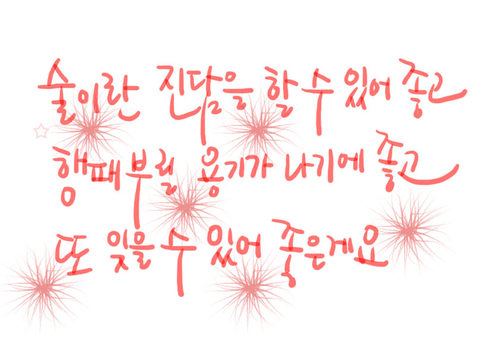 술이란 진담을 할 수 있어 좋고
행패부릴 용기가 나기에 좋고
또 잊을 수 있어 좋은게요